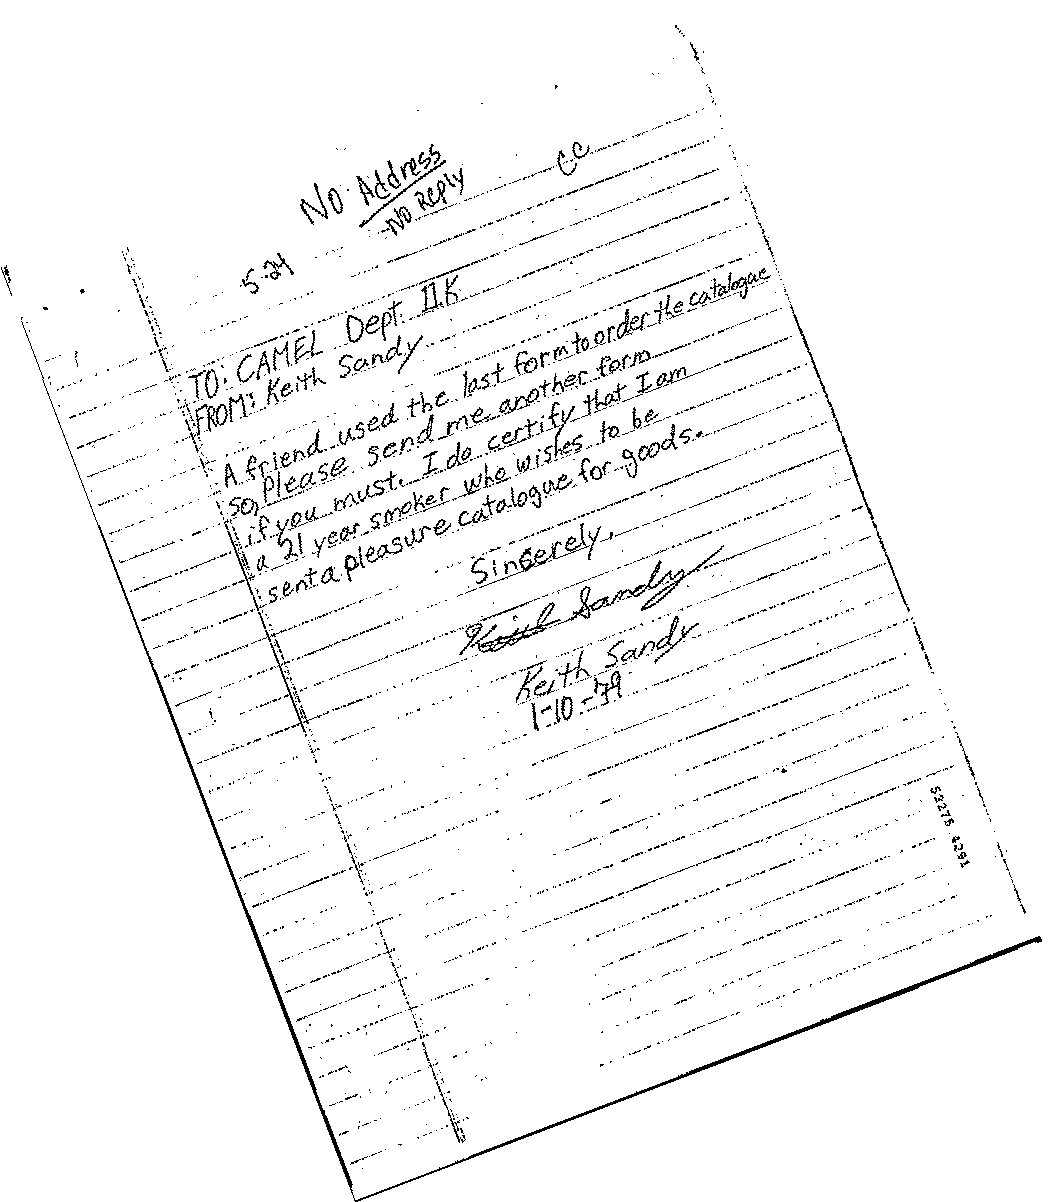 No Address
No Reply
CC
5-24
TO: CAMEL Dept. IIK
FROM: Keith Sandy
A friend used the last form to order the catalogue
so, please send me another form
if you must. I do certify that I am
a 21 year smoker who wishes to be
sent a pleasure catalogue for goods.
Sincerely,
Keith Sandy
Keith Sandy
1-10-'79
52275 4291